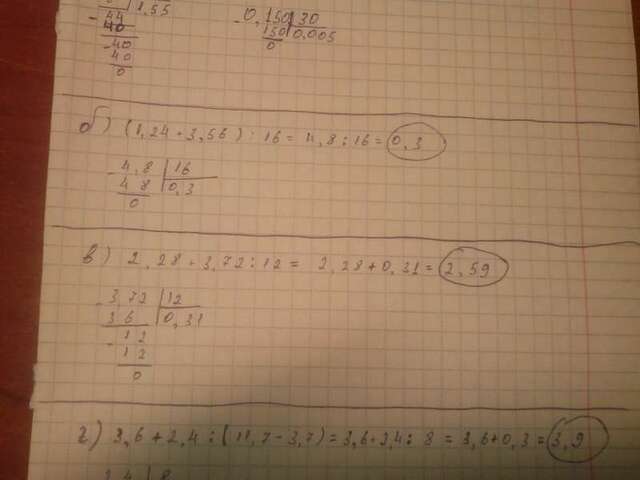 44 | 1,55
40
40
40
0
0,150 | 30
150 | 0,005
0
б) (1,24 + 3,56) : 16 = 4,8 : 16 = 0,3
4,8 | 16
4 8 | 0,3
0
в) 2,28 + 3,72 : 12 = 2,28 + 0,31 = 2,59
3,72 | 12
3 6 | 0,31
12
12
0
г) 3,6 + 2,4 : (11,7 - 3,7) = 3,6 + 2,4 : 8 = 3,6 + 0,3 = 3,9
2,4 | 8